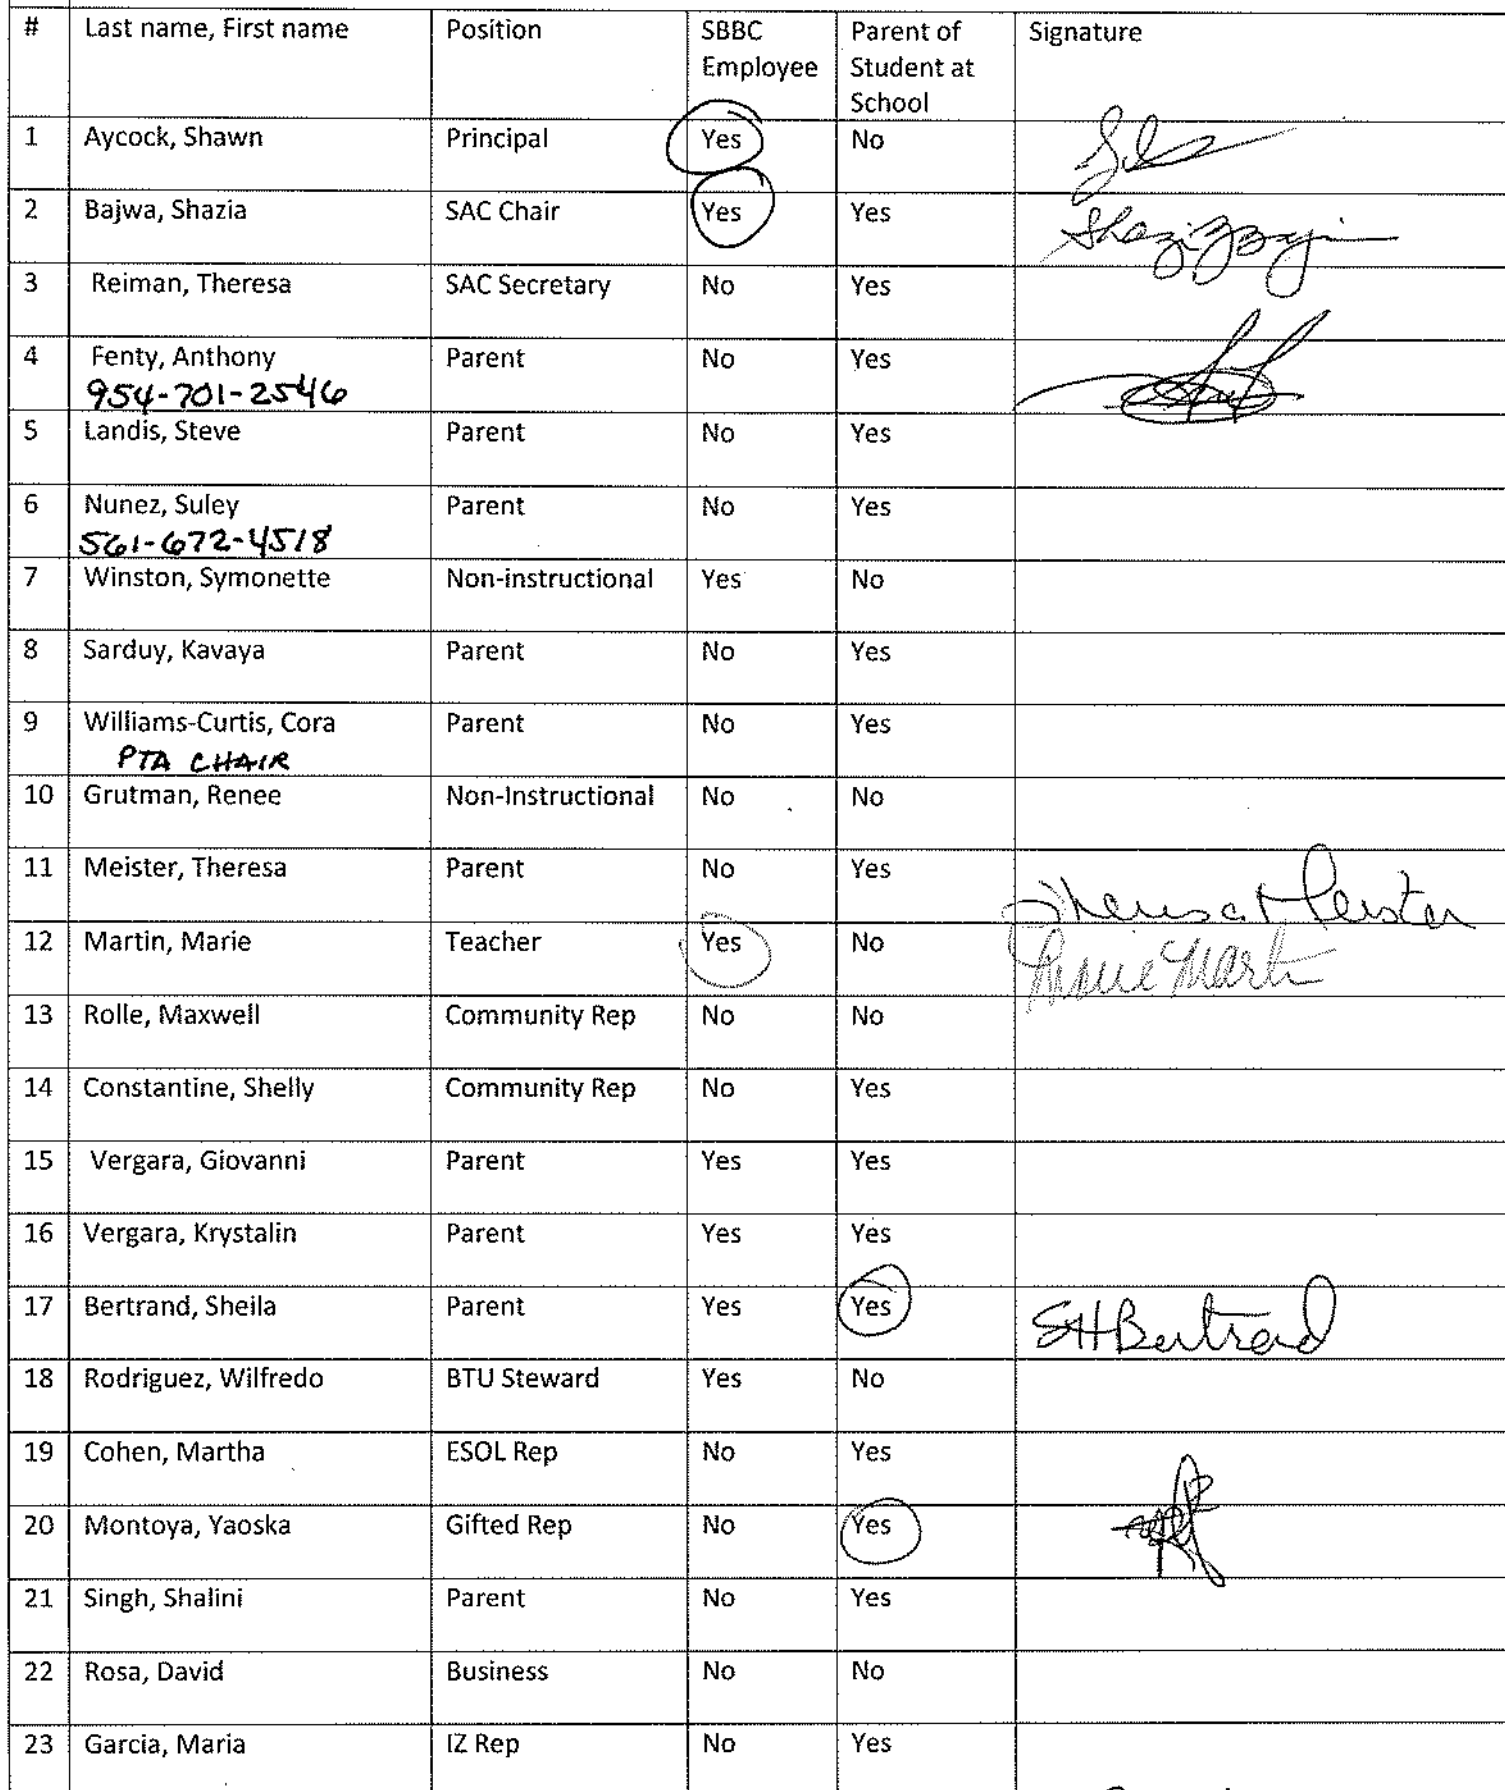 # Last name, First name Position SBBC Employee Parent of Student at School Signature
1 Aycock, Shawn Principal Yes No
2 Bajwa, Shazia SAC Chair Yes Yes Shazia Baj
3 Reiman, Theresa SAC Secretary No Yes
4 Fenty, Anthony Parent No Yes
954-701-2546
5 Landis, Steve Parent No Yes
6 Nunez, Suley Parent No Yes
561-672-4518
7 Winston, Symonette Non-instructional Yes No
8 Sarduy, Kavaya Parent No Yes
9 Williams-Curtis, Cora Parent No Yes
PTA CHAIR
10 Grutman, Renee Non-Instructional No No
11 Meister, Theresa Parent No Yes Theresa Meister
12 Martin, Marie Teacher Yes No Marie Martin
13 Rolle, Maxwell Community Rep No No
14 Constantine, Shelly Community Rep No Yes
15 Vergara, Giovanni Parent Yes Yes
16 Vergara, Krystalin Parent Yes Yes
17 Bertrand, Sheila Parent Yes Yes SHBertrand
18 Rodriguez, Wilfredo BTU Steward Yes No
19 Cohen, Martha ESOL Rep No Yes
20 Montoya, Yaoska Gifted Rep No Yes
21 Singh, Shalini Parent No Yes
22 Rosa, David Business No No
23 Garcia, Maria IZ Rep No Yes